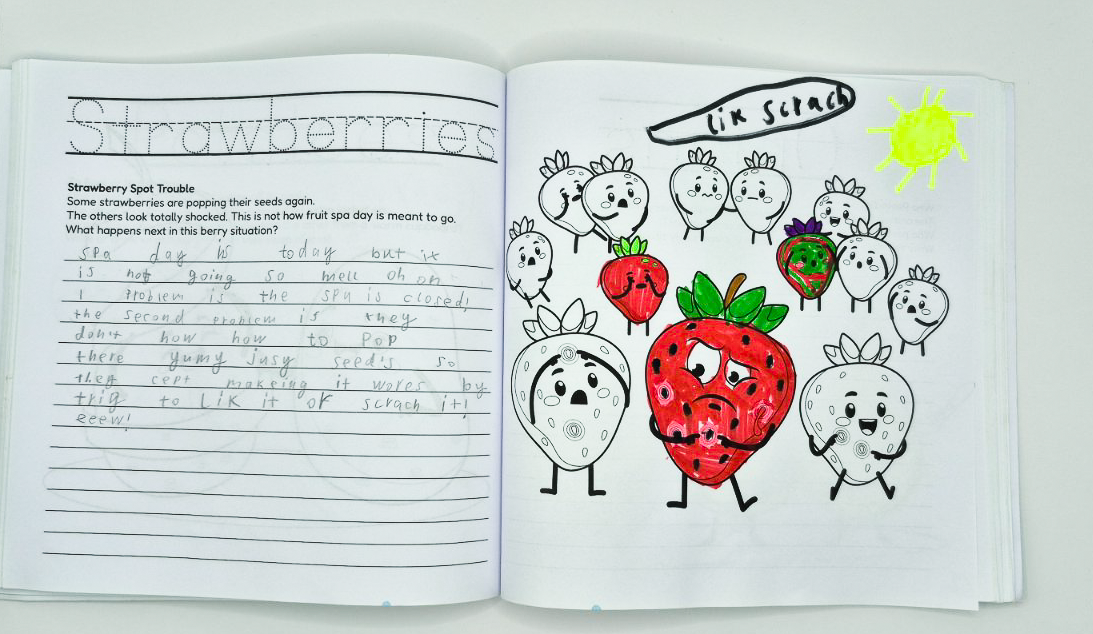 Strawberries
Strawberry Spot Trouble
Some strawberries are popping their seeds again.
The others look totally shocked. This is not how fruit spa day is meant to go.
What happens next in this berry situation?
spa day is today but it
is not going so mell oh on
1 Problem is the spa is closed!
the second problem is they
don't how how to POP
there yumy jusy seed's so
they cept makeing it wores by
trig to LiK it or scrach it!
eeew!
lik scrach